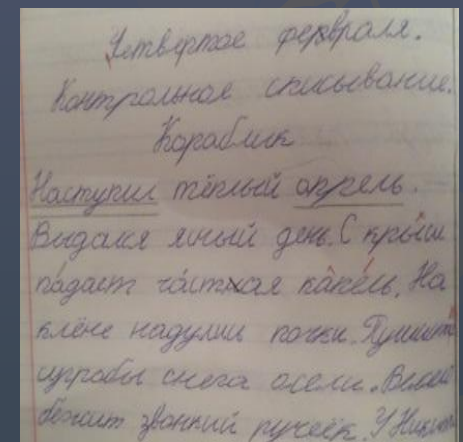 Четвертое февраля.
Контрольное списывание.
Кораблик
Наступил тёплый апрель.
Выдался яный день. С крыш
падает частная капель. На
клёне надулись почки. Пушист
сугробы снега осели. Весело
бежит звонкий ручеёк. У Никиты